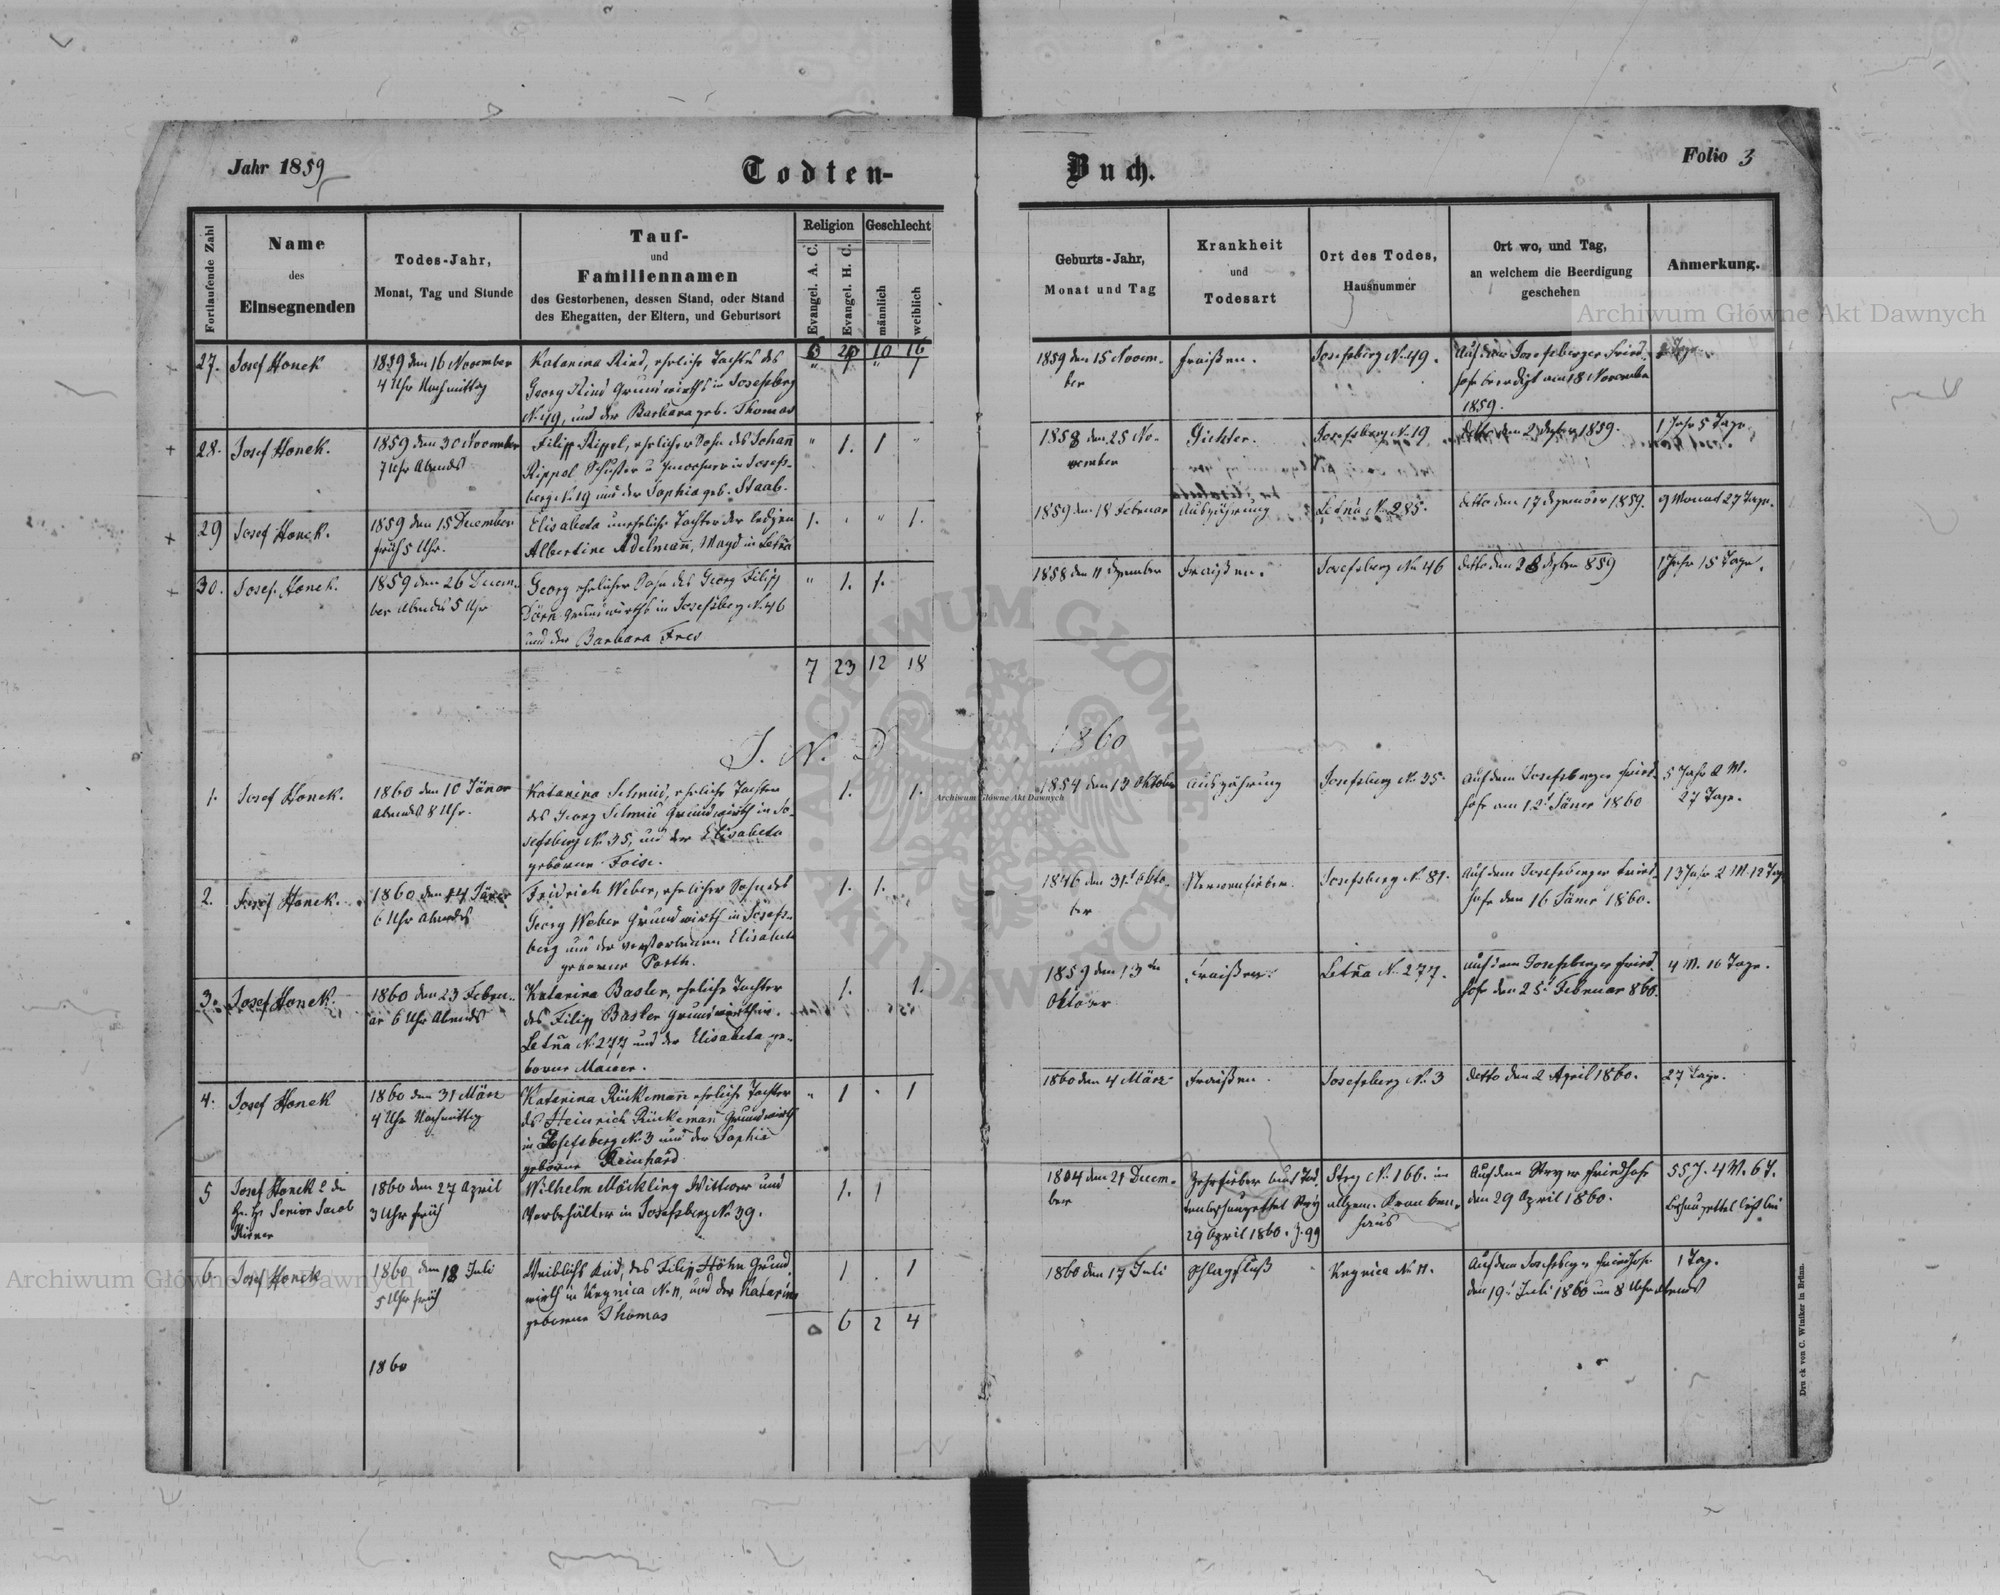 Jahr 1859
Todten-
Buch.
Folio 3
Fortlaufende Zahl
Name
des
Einsegnenden
Todes-Jahr,
Monat, Tag und Stunde
Tauf-
und
Familiennamen
des Gestorbenen, dessen Stand, oder Stand
des Ehegatten, der Eltern, und Geburtsort
Religion
Evangel. A. C.
Evangel. H. C.
Geschlecht
männlich
weiblich
Geburts-Jahr,
Monat und Tag
Krankheit
und
Todesart
Ort des Todes,
Hausnummer
Ort wo, und Tag,
an welchem die Beerdigung
geschehen
Anmerkung.
6 10 16
27. Josef Honek
1859 den 16 November
4 Uhr Nachmittag
Katarina Ried, eheliche Tochter des
Georg Ried Grundwirths in Josefsberg
N. 49, und der Barbara geb. Thomas
" 1 " 1
1859 den 15 Novem-
ber
Fraißen.
Josefsberg N. 49.
Auf dem Josefsberger Fried-
hofe beerdigt am 18 November
1859.
28. Josef Honek.
1859 den 30 November
7 Uhr Abends
Filipp Rippel, ehelicher Sohn des Johann
Rippel Schuster u Inwohner in Josefs-
berg N. 19 und der Sophia geb. Staab.
" 1. 1 "
1858 den 25 No-
vember
Gichter.
Josefsberg N. 19
detto den 2 Dezber 1859.
1 Jahr 5 Tage
29 Josef Honek.
1859 den 15 December
früh 5 Uhr.
Elisabeta uneheliche Tochter der ledigen
Albertine Adelmañ, Magd in Letña
1. " " 1.
1859 den 18 Februar
Auszehrung
Letña N. 285.
detto den 17 Dezember 1859.
9 Monat 27 Tage.
30. Josef Honek.
1859 den 26 Decem-
ber Abends 5 Uhr
Georg ehelicher Sohn des Georg Filipp
Dörr Grundwirths in Josefsberg N. 46
und der Barbara
" 1. 1.
1858 den 11 Dezember
Fraißen.
Josefsberg N. 46
detto den 28 Dezber 859
1 Jahr 15 Tage.
7 23 12 18
J. N. D.
1860
1. Josef Honek.
1860 den 10 Jäner
Abends 8 Uhr.
Katarina Schmid, eheliche Tochter
des Georg Schmid Grundwirth in Jo-
sefsberg N. 35, und der Elisabeta
geborene
1. 1.
1854 den 13 Oktober
Auszehrung
Josefsberg N. 35.
Auf dem Josefsberger Fried-
hofe am 12 Jäner 1860
5 Jahr 2 M.
27 Tage.
2. Josef Honek.
1860 den 14 Jäner
6 Uhr Abends
Fridrich Weber, ehelicher Sohn des
Georg Weber Grundwirth in Josefs-
berg und der verstorbenen Elisabeta
geborene
1. 1.
1846 den 31 Okto-
ber
Nervenfieber.
Josefsberg N. 81.
Auf dem Josefsberger Fried-
hofe den 16 Jäner 1860.
13 Jahr 2 M. 12 Tag
3. Josef Honek.
1860 den 23 Febru-
ar 6 Uhr Abends
Katarina Basler, eheliche Tochter
des Filipp Basler Grundwirth in
Letña N. 277 und der Elisabeta ge-
borene Mauer.
1. 1.
1859 den 13ten
Oktober
Fraißen.
Letña N. 277.
Auf dem Josefsberger Fried-
hofe den 25 Februar 860.
4 M. 10 Tage.
4. Josef Honek
1860 den 31 März
4 Uhr Nachmittag
Katarina Rückemañ eheliche Tochter
des Heinrich Rückemañ Grundwirth
in Josefsberg N. 3 und der Sophie
geborene Reinhard
" 1 " 1
1860 den 4 März
Fraißen.
Josefsberg N. 3
detto den 2 April 1860.
27 Tage.
5 Josef Honek
Senior Jacob
1860 den 27 April
3 Uhr früh
Wilhelm Möckling Wittwer und
Vorbehälter in Josefsberg N. 39.
1. 1
1804 den 21 Decem-
ber
Zehrfieber laut Tod-
29 April 1860. Z. 99
Stry N. 166. im
allgem. Kranken-
haus
Auf dem Stryer Friedhofe
den 29 April 1860.
55 J. 4 M. 6 T.
6 Josef Honek
1860 den 18 Juli
5 Uhr früh
Weibliches Kind, des Filipp Höhn Grund-
wirth in Krynica N. 11, und der Katarina
geborene Thomas
1 . 1
1860 den 17 Juli
Schlagfluß
Krynica N. 11.
Auf dem Josefsberger Friedhofe
den 19 Juli 1860 um 8 Uhr Abends
1 Tag.
0 6 2 4
1860
Druck von C. Winiker in Brünn.
Archiwum Główne Akt Dawnych
Archiwum Główne Akt Dawnych
Archiwum Główne Akt Dawnych
ARCHIWUM GŁÓWNE AKT DAWNYCH